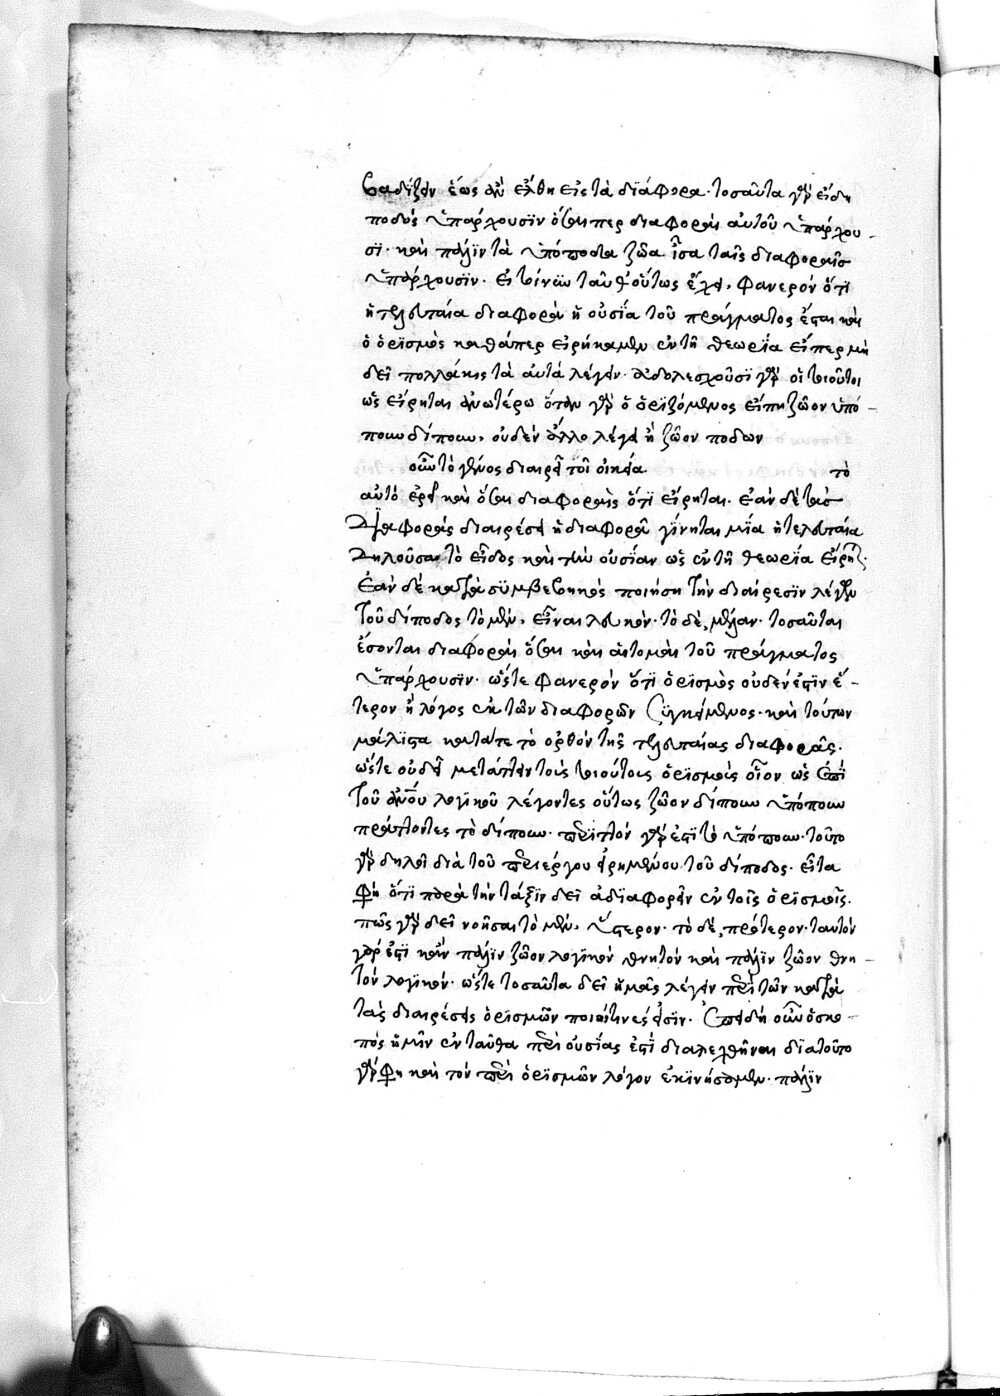 βαδίζειν ἕως ἂν ἔλθη εἰς τὰ διάφορα· τοσαῦτα γὰρ εἴδη
ποδὸς ὑπάρχουσιν ὅσαι περ διαφοραὶ αὐτοῦ ὑπάρχου-
σι· καὶ πάλιν τὰ ὑπόποδα ζῶα ἶσα ταῖς διαφοραῖς
ὑπάρχουσιν· εἰ τοίνυν ταῦθ' οὕτως ἔχει, φανερὸν ὅτι
ἡ τελευταία διαφορὰ ἡ οὐσία τοῦ πράγματος ἔσται καὶ
ὁ ὁρισμὸς καθάπερ εἰρήκαμεν ἐν τῆ θεωρία εἴπερ μὴ
δεῖ πολλάκις τὰ αὐτὰ λέγειν· ἀδολεσχοῦσι γὰρ οἱ τοιοῦτοι
ὡς εἴρηται ἀνωτέρω ὅταν γὰρ ὁ ὁριζόμενος εἴπη ζῶον ὑπό-
πουν δίπουν, οὐδὲν ἄλλο λέγει ἢ ζῶον ποδῶν
οὖν τὸ γένος διαιρεῖ τοῖ οἰκεία τὸ
αὐτὸ ἐρεῖ καὶ ὅσαι διαφοραῖς ὅτι εἴρηται. ἐὰν δὲ τὰς
διαφορὰς διαιρέσει ἡ διαφορὰ γίνηται μία ἡ τελευταία
δηλοῦσα τὸ εἶδος καὶ τὴν οὐσίαν ὡς ἐν τῆ θεωρία εἴρηται.
ἐὰν δὲ κατὰ συμβεβηκὸς ποιήση τὴν διαίρεσιν λέγων
τοῦ δίποδος τὸ μὲν, εἶναι λευκὸν· τὸ δὲ, μέλαν· τοσαῦται
ἔσονται διαφοραὶ ὅσαι καὶ αἱ τομαὶ τοῦ πράγματος
ὑπάρχουσιν· ὥστε φανερὸν ὅτι ὁρισμὸς οὐδέν ἐστιν ἕ-
τερον ἢ λόγος ἐκ τῶν διαφορῶν συγκείμενος· καὶ τούτων
μάλιστα κατά τε τὸ ὀρθὸν τῆς τελευταίας διαφορᾶς.
ὥστε οὐδεῖ μετάπτειν τοὺς τοιούτους ὁρισμοὺς οἷον ὡς ἐπὶ
τοῦ ἀνθρώπου λογικοῦ λέγοντες οὕτως ζῶον δίπουν ὑπόπουν
προάττοντες τὸ δίπουν· περιττὸν γάρ ἐστι τὸ ὑπόπουν· τοῦτο
γὰρ δηλοῖ διὰ τοῦ περιέργου εἰρημένου τοῦ δίποδος. εἶτα
φησὶ ὅτι παρὰ τὴν τάξιν δεῖ ἀδιαφορεῖν ἐν τοῖς ὁρισμοῖς.
πῶς γὰρ δεῖ νοῆσαι τὸ μὲν, ὕστερον· τὸ δὲ, πρότερον· ταυτὸν
γάρ ἐστι κἂν πάλιν ζῶον λογικὸν θνητὸν καὶ πάλιν ζῶον θνη-
τὸν λογικόν· ὥστε τοσαῦτα δεῖ ἡμᾶς λέγειν περὶ τῶν κατὰ
τὰς διαιρέσεις ὁρισμῶν ποιοί τινές εἰσιν. ἐπειδὴ οὖν ὁ σκο-
πὸς ἡμῖν ἐνταῦθα περὶ οὐσίας ἐστὶ διαλεχθῆναι διατοῦτο
γάρ φησι καὶ τὸν περὶ ὁρισμῶν λόγον ἐκινήσαμεν· πάλιν